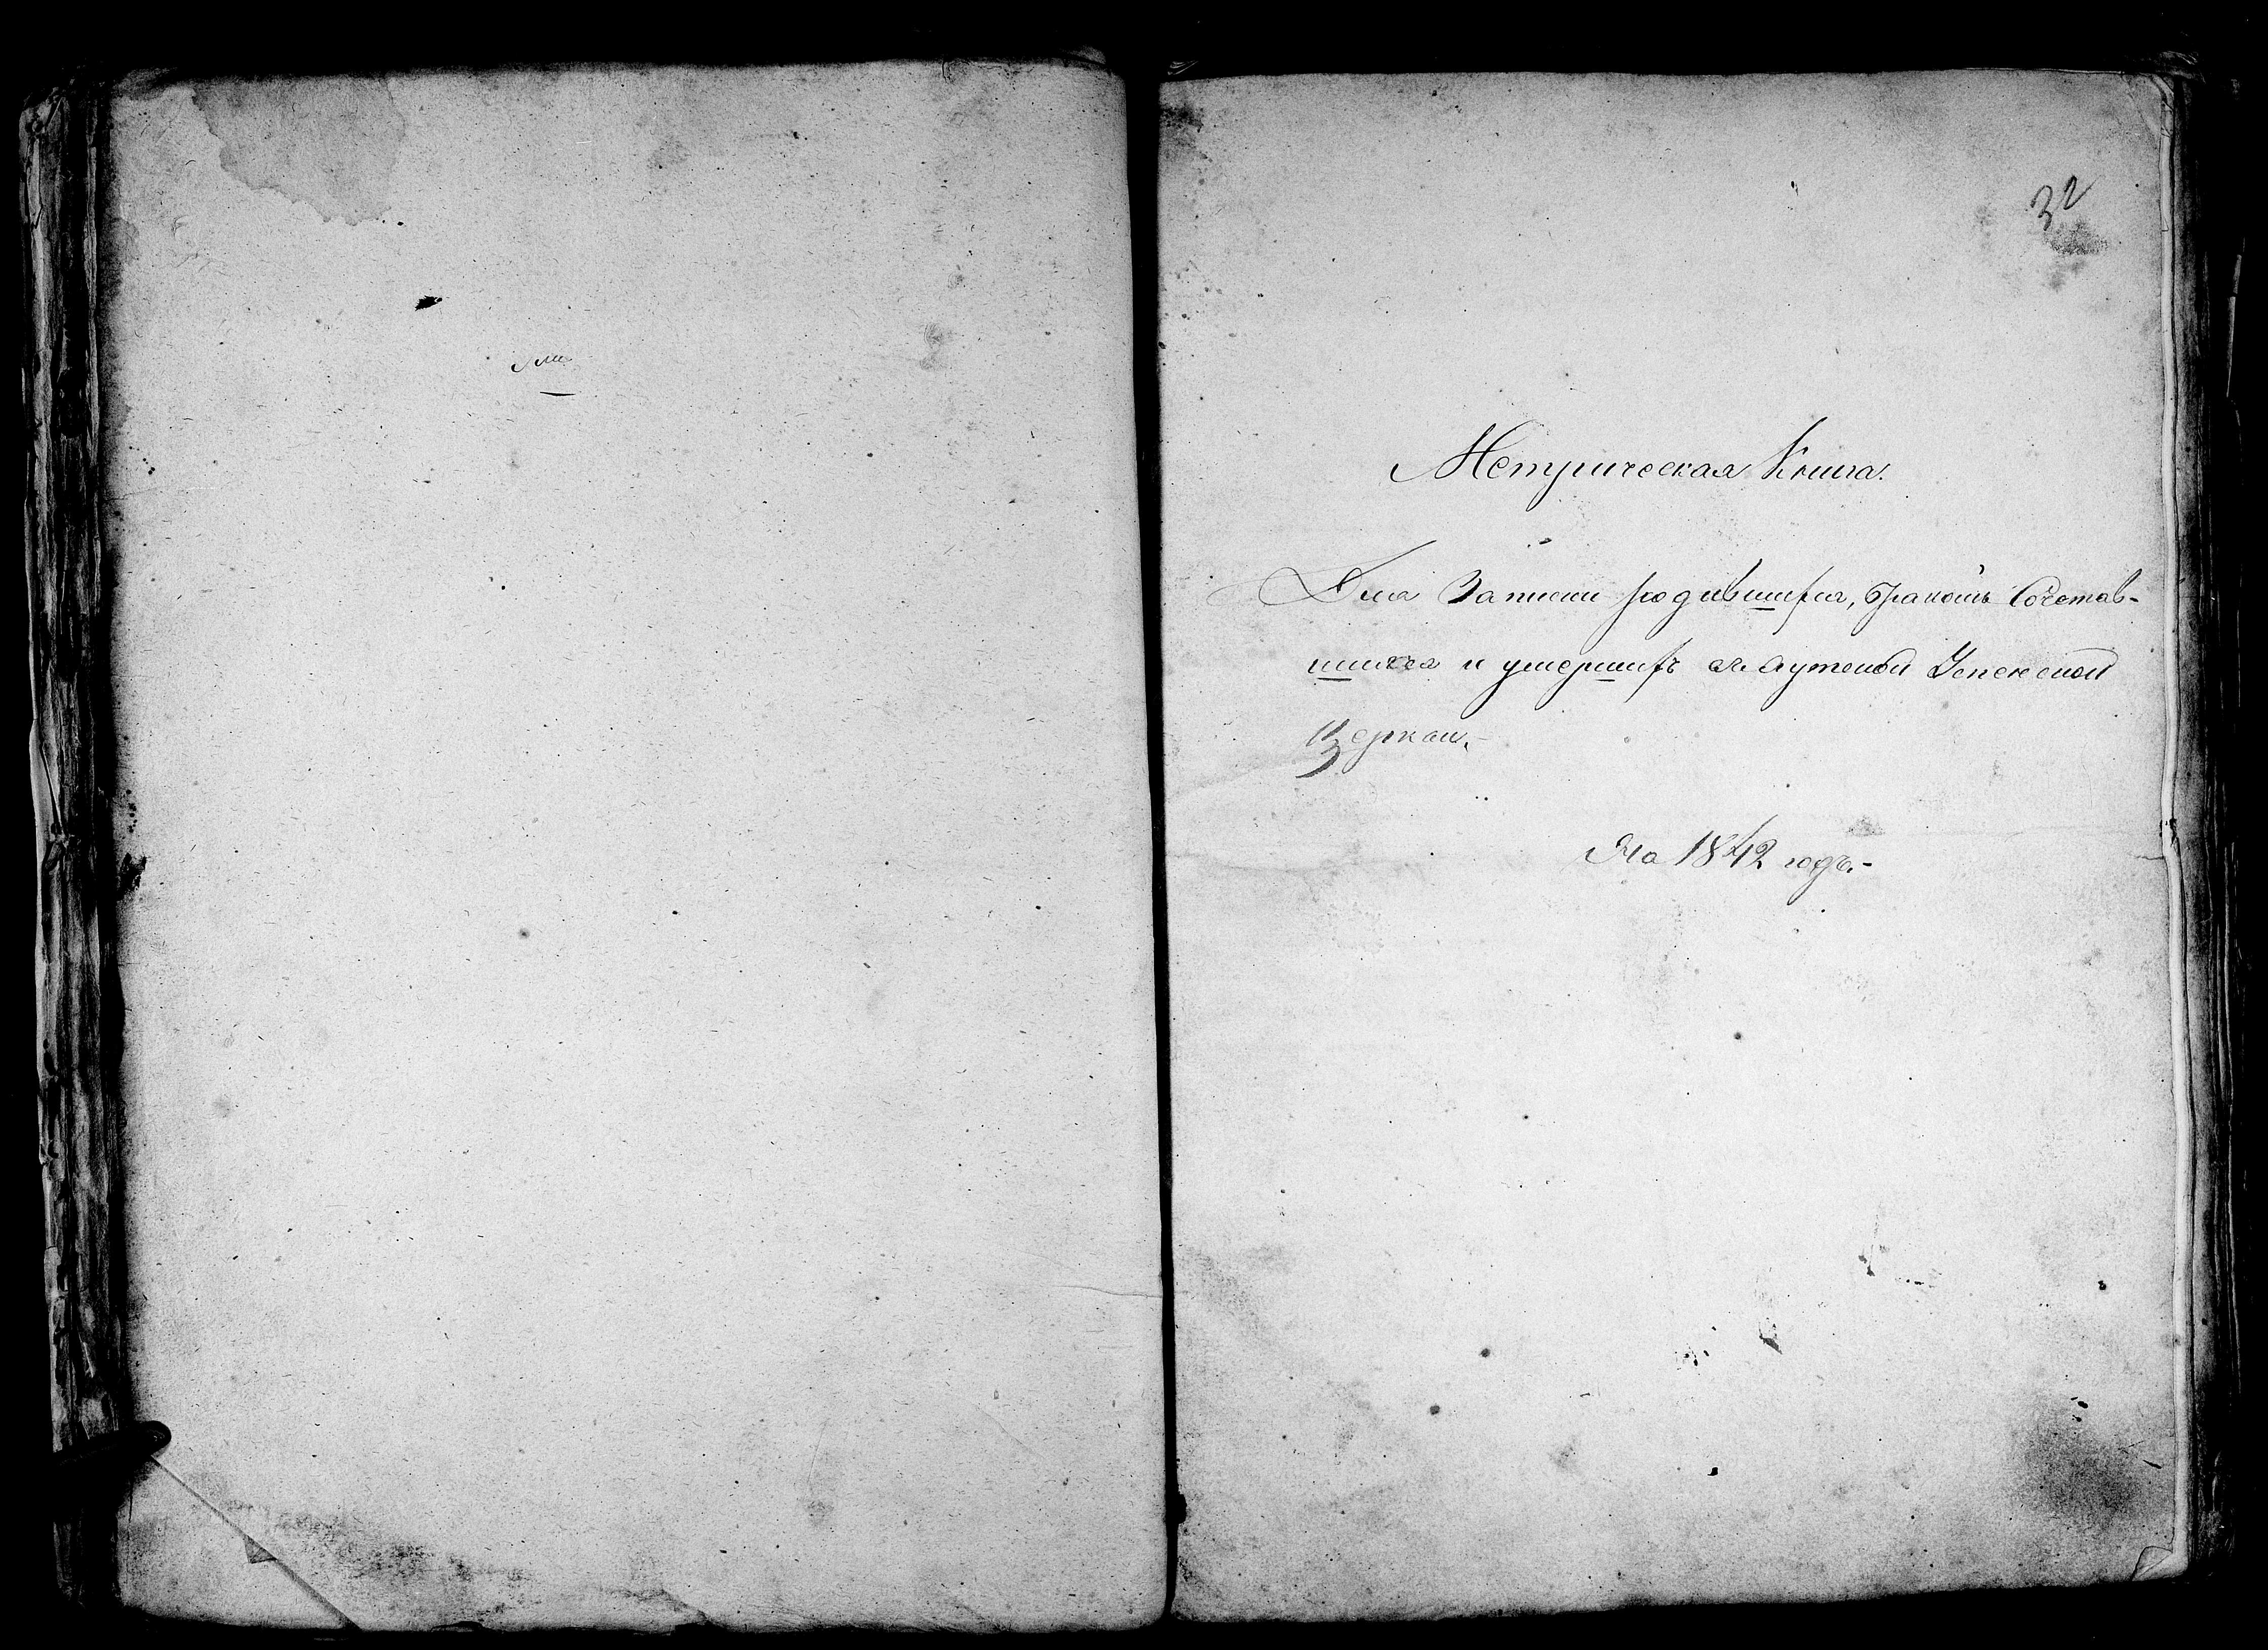 32
Метрическая Книга.
Для Записки родившихся, бракомъ Сочетав-
шихся и умершихъ Аеутской Успенской
Церкви.-
На 1842 годъ.-